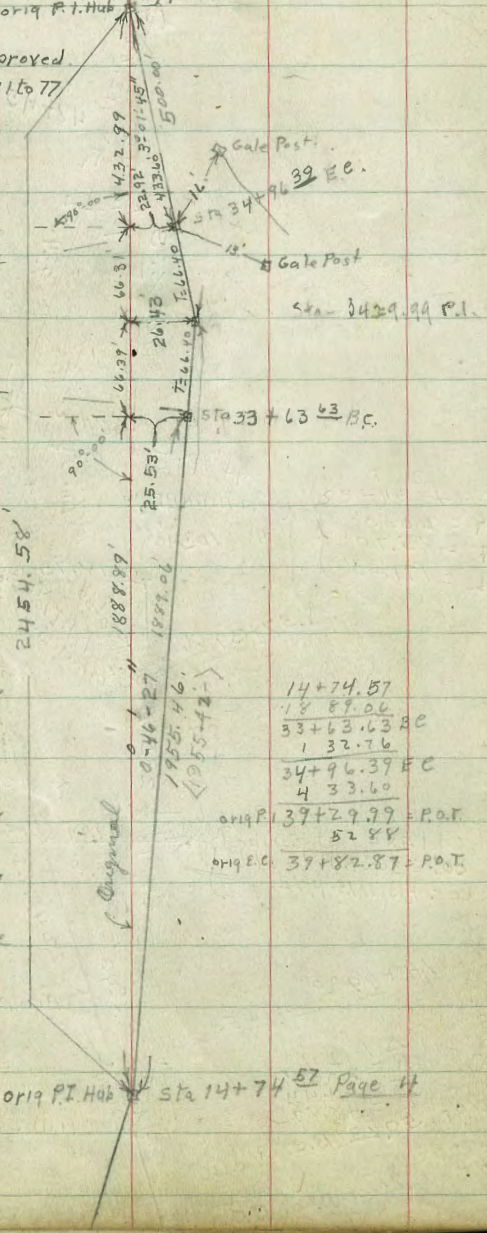 orig P.I. Hub
proved
1 to 77
432.99
3°-01'-45"
500.00'
22.92'
433.60
Gale Post.
16'
Sta 34+96 39 E.C.
90°-00'
13'
Gale Post
66.31'
T=66.40
26.43'
P.I.
66.39'
T=66.40
Sta 33+63 63 B.C.
90°-00'
25.53'
2454.58'
1888.89'
1889.06'
0°-46'-27"
1955.46.
14+74.57
18 89.06
33+63.63 BC
1 32.76
34+96.39 EC
4 33.60
orig P.I 39+29.99 = P.O.T.
52 88
orig E.C. 39+82.87 = P.O.T.
Original
orig P.I. Hub
Sta 14+74 57 Page 4